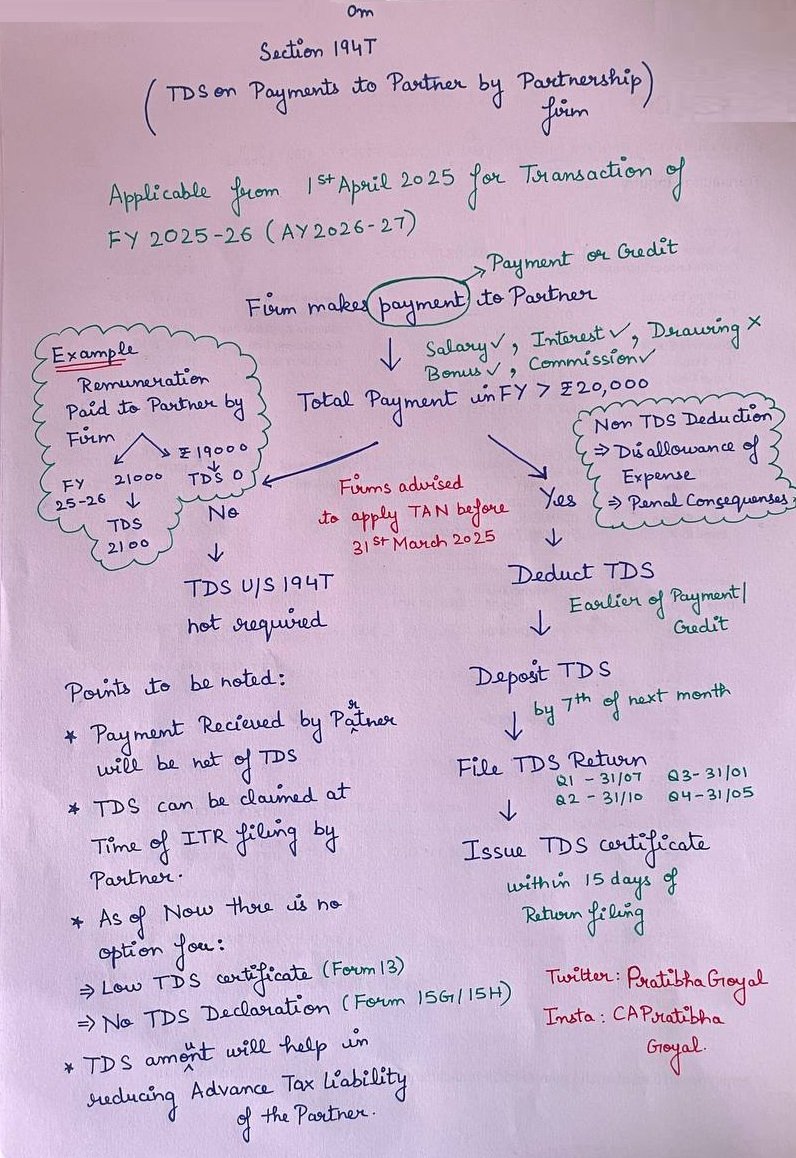 Om
Section 194T
(TDS on Payments to Partner by Partnership)
firm
Applicable from 1st April 2025 for Transaction of
FY 2025-26 (AY2026-27)
Payment or Credit
Firm makes payment to Partner
Salary✓, Interest✓, Drawing ×
Bonus✓, Commission✓
Total Payment in FY > ₹20,000
Example
Remuneration
Paid to Partner by
Firm
₹19000
FY 21000 TDS 0
25-26
TDS
2100
Non TDS Deduction
⇒ Disallowance of
Expense
⇒ Penal Consequenses
Firms advised
to apply TAN before
31st March 2025
No
Yes
TDS U/S 194T
not required
Deduct TDS
Earlier of Payment/
Credit
Deposit TDS
by 7th of next month
File TDS Return
Q1 - 31/07 Q3-31/01
Q2 - 31/10 Q4-31/05
Issue TDS certificate
within 15 days of
Return filing
Points to be noted:
* Payment Recieved by Partner
will be net of TDS
* TDS can be claimed at
Time of ITR filing by
Partner.
* As of Now thre is no
option for:
⇒ Low TDS certificate (Form 13)
⇒ No TDS Declaration (Form 15G/15H)
* TDS amount will help in
reducing Advance Tax Liability
of the Partner.
Twitter: Pratibha Goyal
Insta: CAPratibha
Goyal.